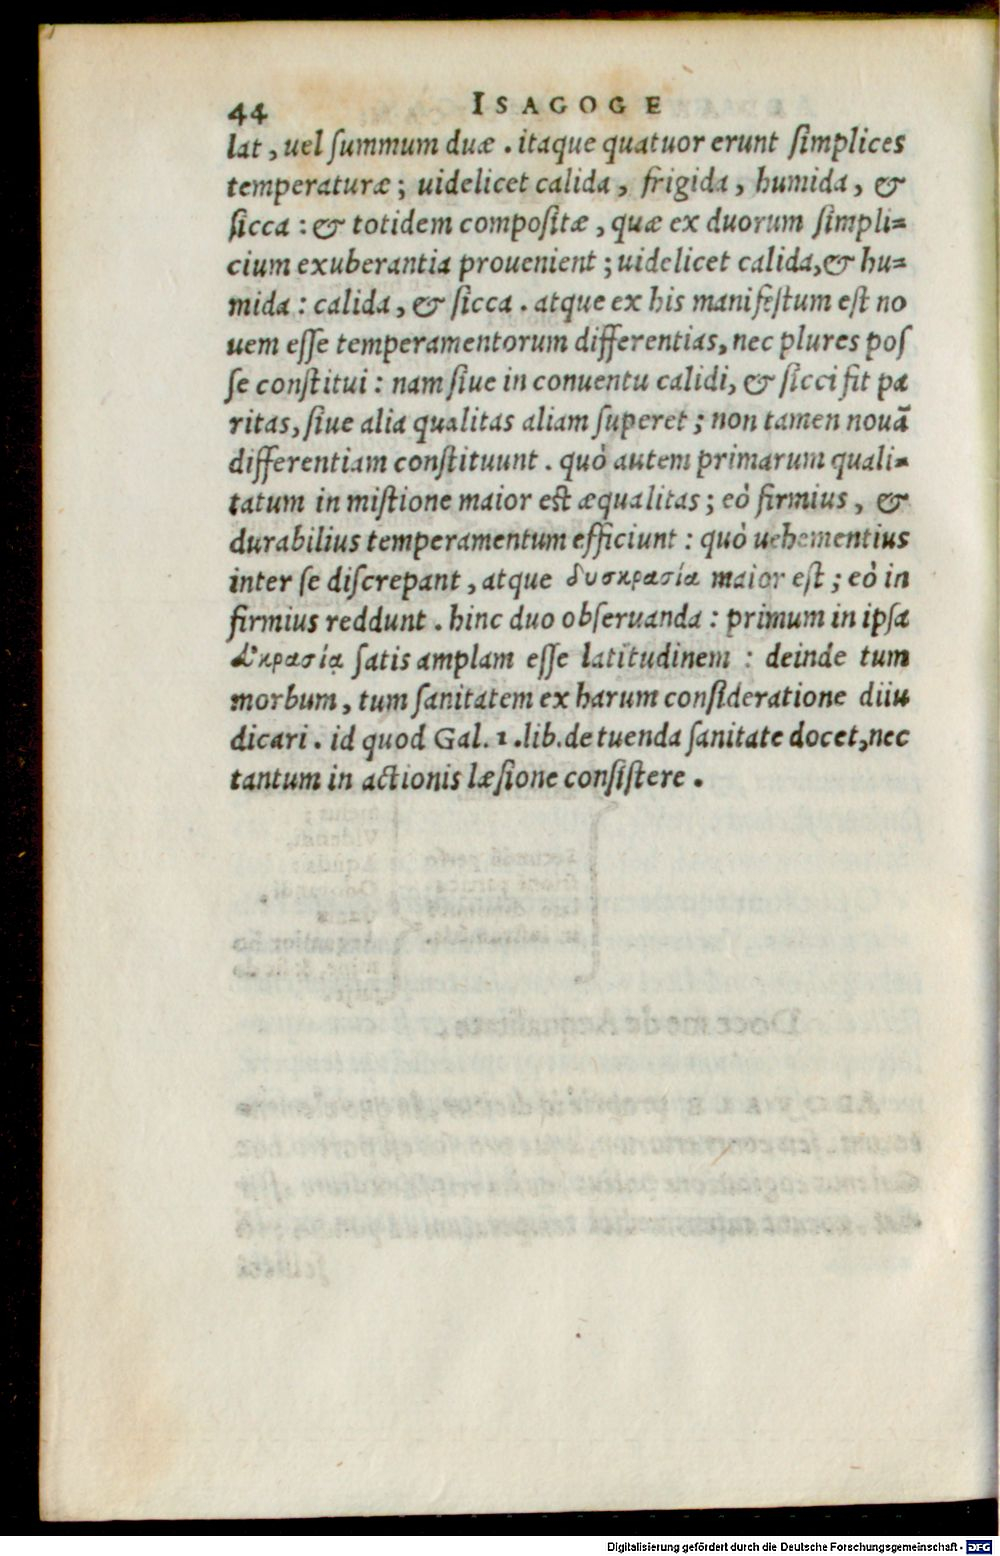 44 ISAGOGE
lat, uel ſummum duæ. itaque quatuor erunt ſimplices
temperaturæ; uidelicet calida, frigida, humida, &
ſicca: & totidem compoſitæ, quæ ex duorum ſimpli=
cium exuberantia prouenient; uidelicet calida, & hu=
mida: calida, & ſicca. atque ex his manifeſtum eſt no
uem eſſe temperamentorum differentias, nec plures poſ
ſe conſtitui: nam ſiue in conuentu calidi, & ſicci fit pa
ritas, ſiue alia qualitas aliam ſuperet; non tamen nouã
differentiam conſtituunt. quò autem primarum quali=
tatum in miſtione maior eſt æqualitas; eò firmius, &
durabilius temperamentum efficiunt: quò uehementius
inter ſe diſcrepant, atque δυσκρασία maior eſt; eò in
firmius reddunt. hinc duo obſeruanda: primum in ipſa
εὐκρασίᾳ ſatis amplam eſſe latitudinem: deinde tum
morbum, tum ſanitatem ex harum conſideratione diiu
dicari. id quod Gal. 1. lib. de tuenda ſanitate docet, nec
tantum in actionis læſione conſiſtere.
Digitalisierung gefördert durch die Deutsche Forschungsgemeinschaft - DFG